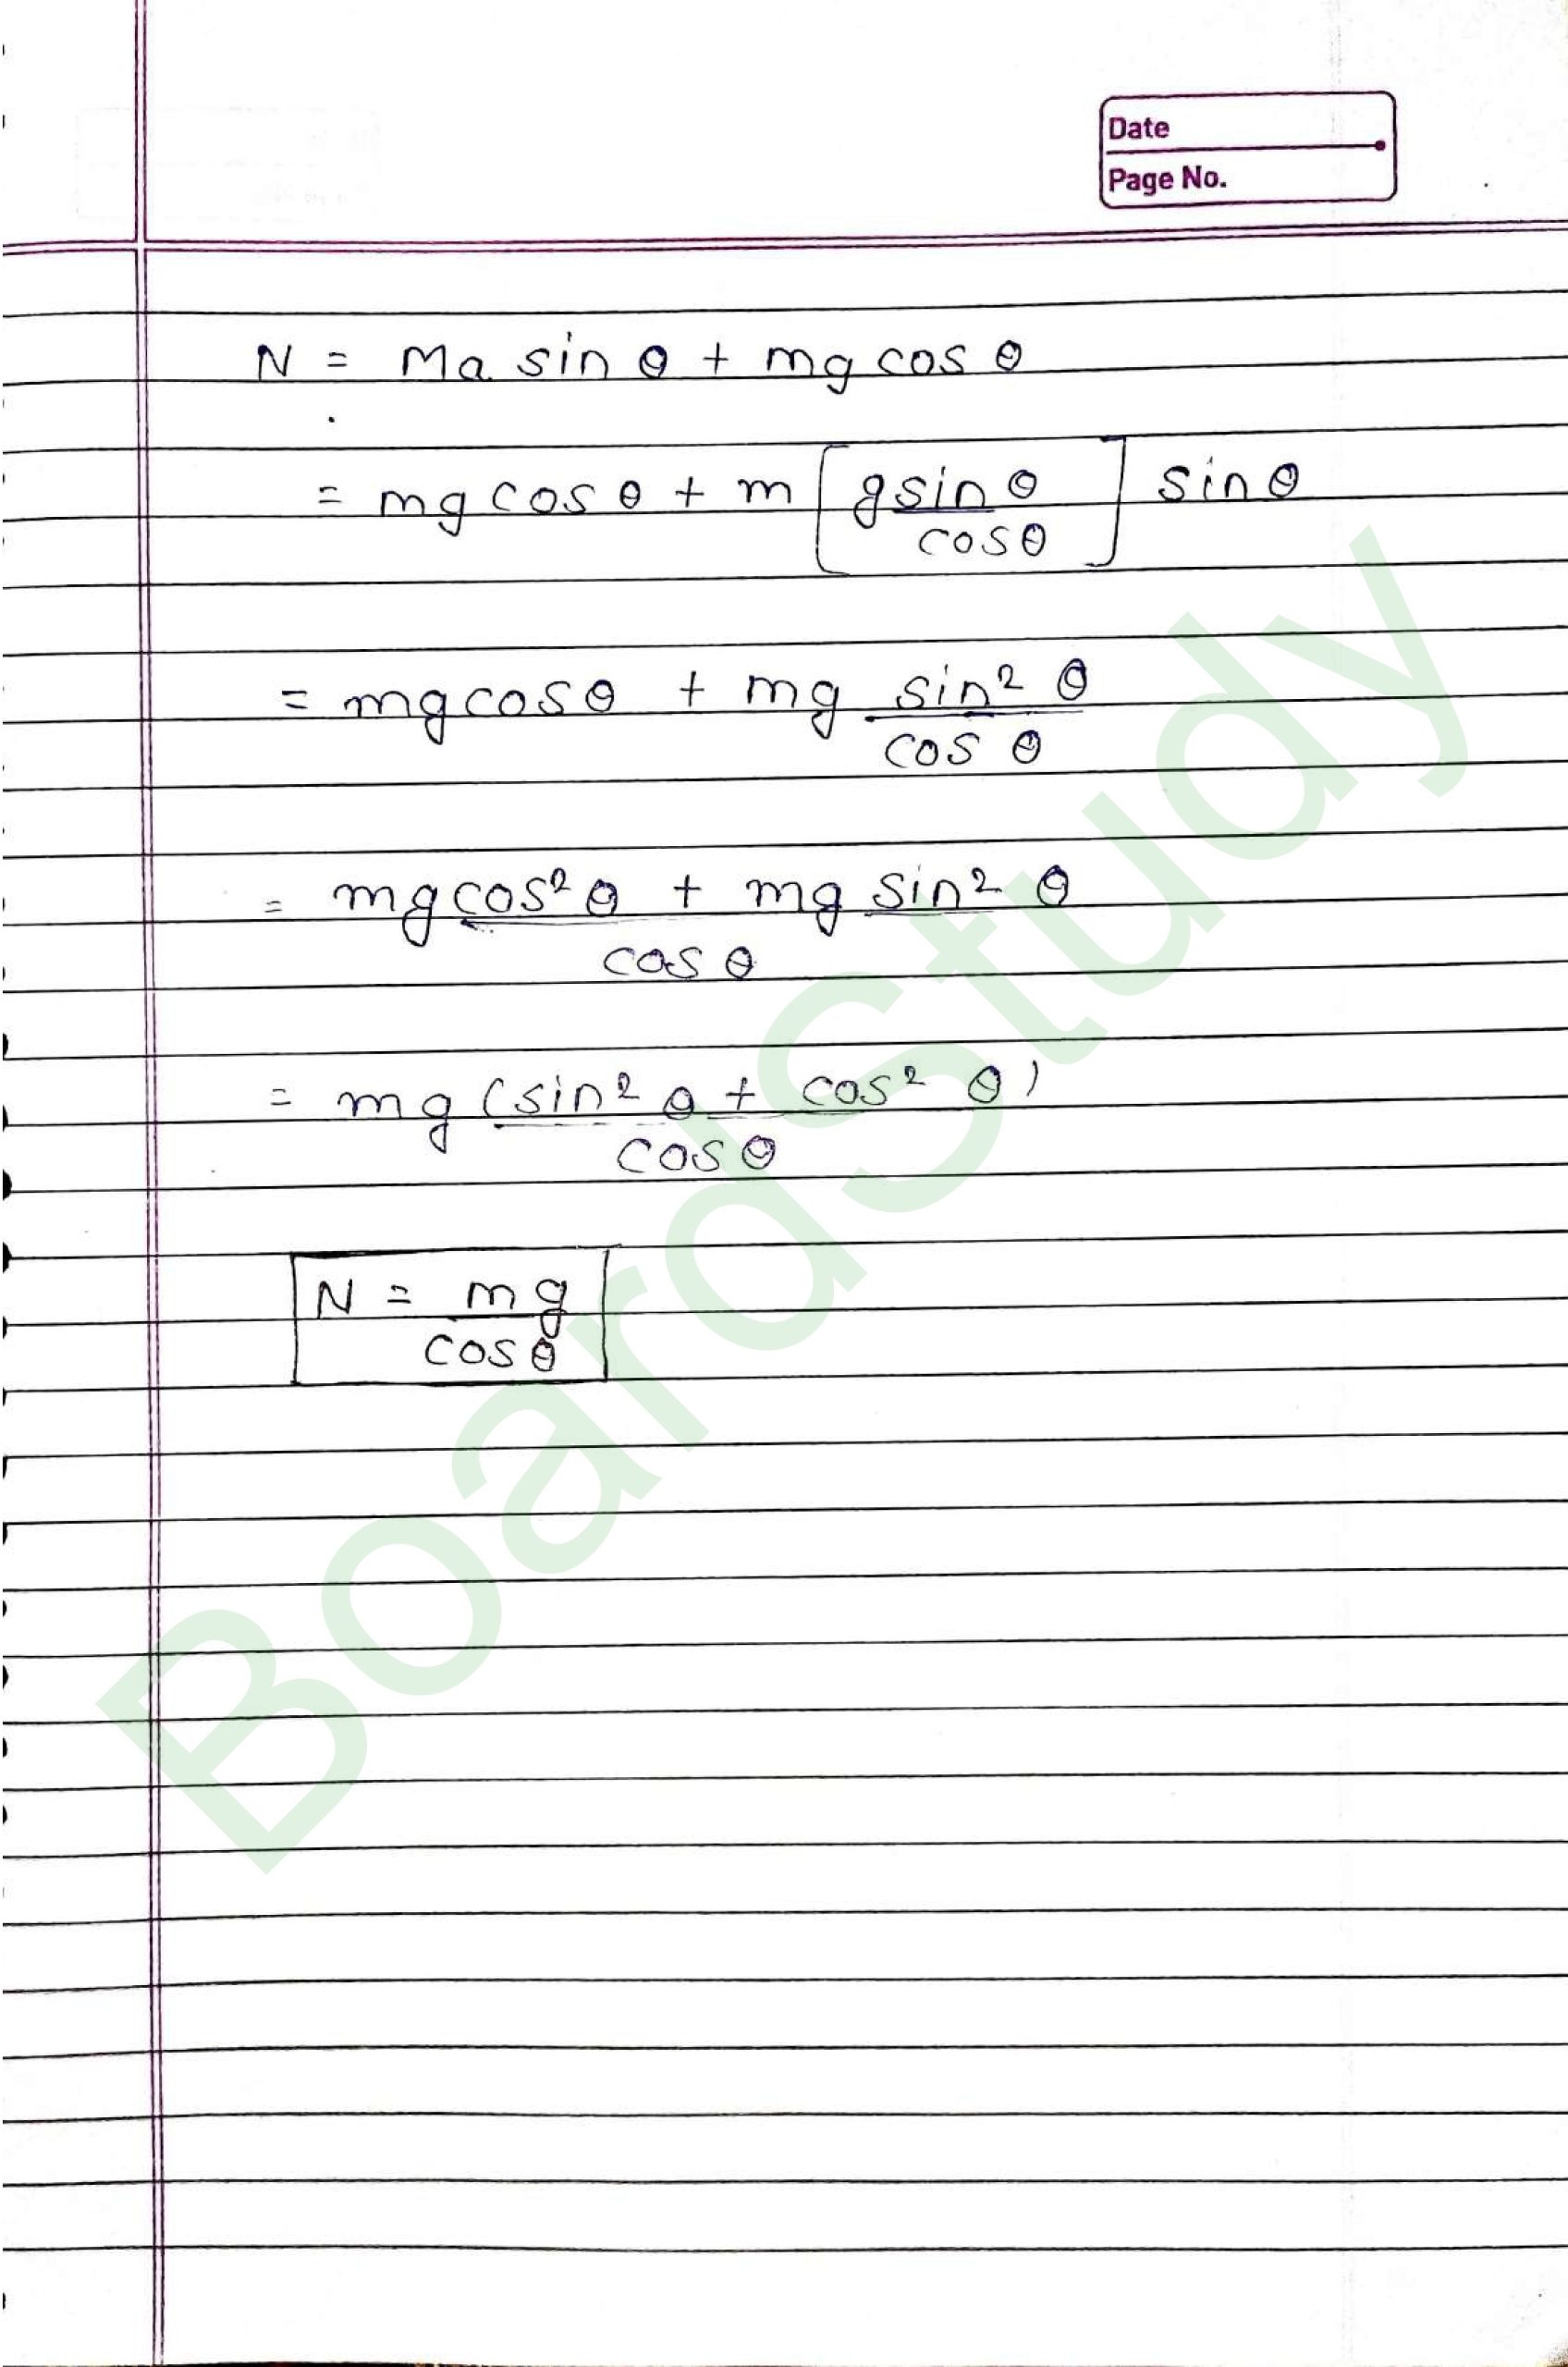 Date
Page No.
N = Ma sin θ + mg cos θ
= mg cos θ + m [ g sin θ / cos θ ] sin θ
= mg cos θ + mg sin² θ / cos θ
= mg cos² θ + mg sin² θ / cos θ
= mg (sin² θ + cos² θ) / cos θ
N = mg / cos θ
BoardStudy